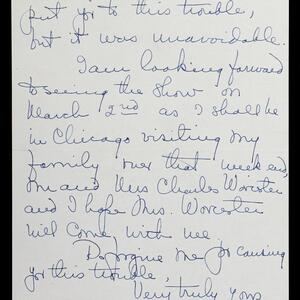 put you to this trouble,
but it was unavoidable.
I am looking forward
to seeing the show on
March 2nd as I shall be
in Chicago visiting my
family over that week end,
Mr and Mrs Charles Worcester
and I hope Mrs. Worcester
will come with me.
Do forgive me for causing
you this trouble,
Very truly yours